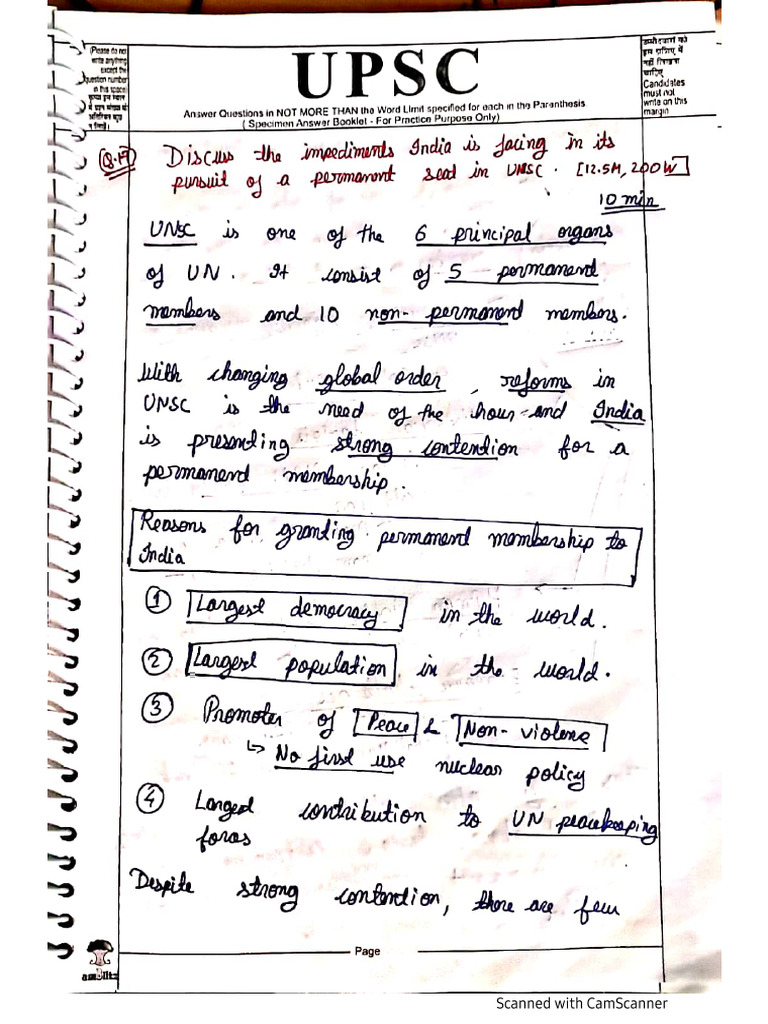 (Please do not
write anything
except the
question number
in this space)
UPSC
Answer Questions in NOT MORE THAN the Word Limit specified for each in the Paranthesis
( Specimen Answer Booklet - For Practice Purpose Only)
उम्मीदवारों को
इस हाशिए में
नहीं लिखना
चाहिए
Candidates
must not
write on this
margin
Q.17 Discuss the impediments India is facing in its
pursuit of a permanent seat in UNSC. [12.5M, 200W]
10 min
UNSC is one of the 6 principal organs
of UN. It consist of 5 permanent
members and 10 non-permanent members.
With changing global order, reforms in
UNSC is the need of the hour and India
is presenting strong contention for a
permanent membership.
Reasons for granting permanent membership to
India
① Largest democracy in the world.
② Largest population in the world.
③ Promoter of Peace & Non-violence
↳ No first use nuclear policy
④ Largest contribution to UN peacekeeping
forces
Despite strong contention, there are few
Page
Scanned with CamScanner